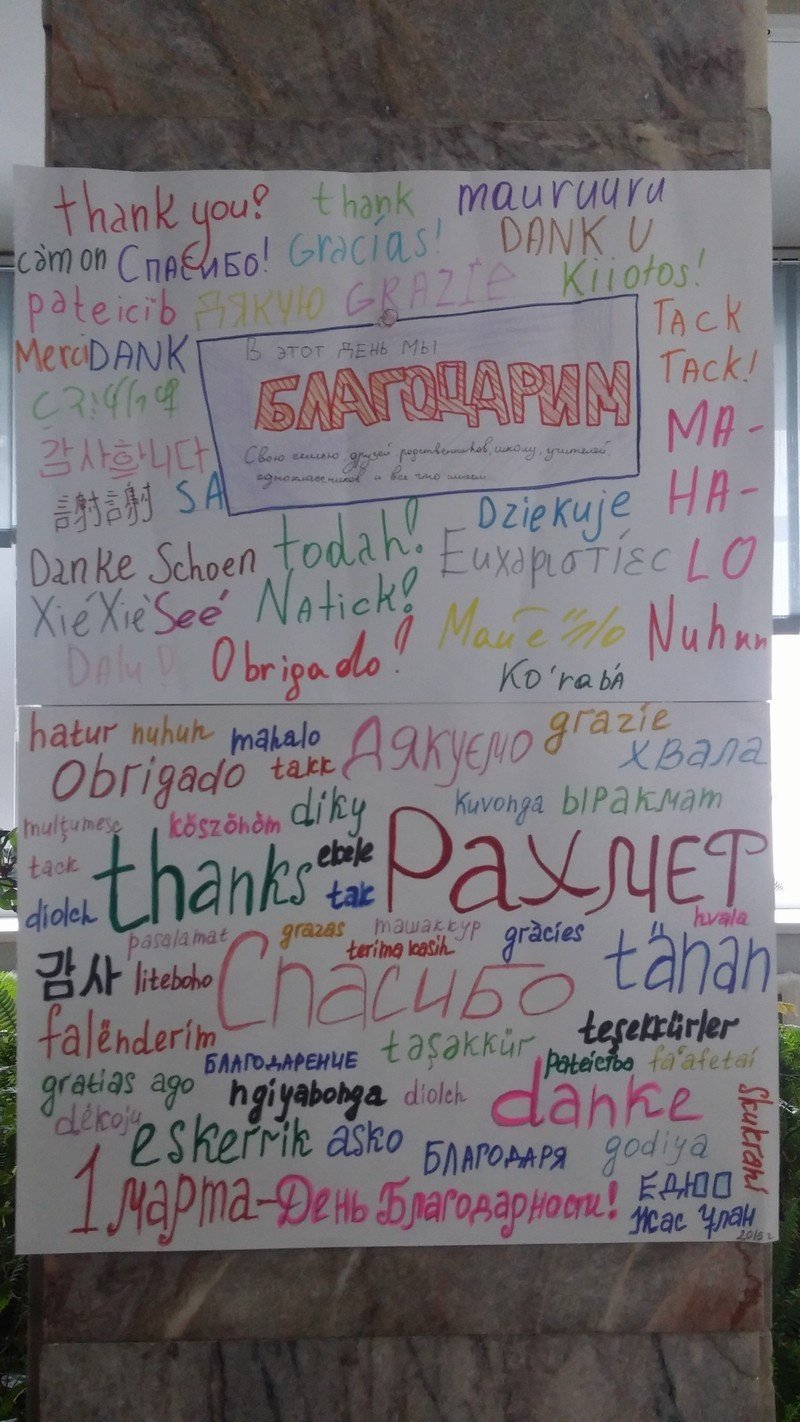 thank you! thank mauruuru
càm on Спасибо! Gracías! DANK U
pateicib ДЯКУЮ GRAZIE Kiiotos!
Merci DANK
В ЭТОТ ДЕНЬ МЫ
БЛАГОДАРИМ
Свою семью, друзей, родственников, школу, учителей
одноклассников и все что имеем
TACK
TACK!
감사합니다
MA-
HA-
LO
謝謝 SA
Dziękuje
Danke Schoen todah! Ευχαριστίες
Xié Xiè Seé Natick!
Obrigado! Nuhun
Ko'rabá
hatur nuhuh mahalo Дякуємо grazie
Obrigado takk хвала
mulţumesc köszönöm diky Kuvonga ЫРАКМАТ
tack thanks ebele Рахмет
diolch tak hvala
pasalamat grazas машаккур gràcies
감사 liteboho Спасибо terima kasih tänan
falënderim taşəkkür teşekkürler
БЛАГОДАРЕНИЕ pateicība fa'afetai
gratias ago ngiyabonga diolch danke
dėkoju eskerrik asko БЛАГОДАРЯ godiya
Shukrani
1 марта-День Благодарности! ЕДЮО
Жас Ұлан
2018 г